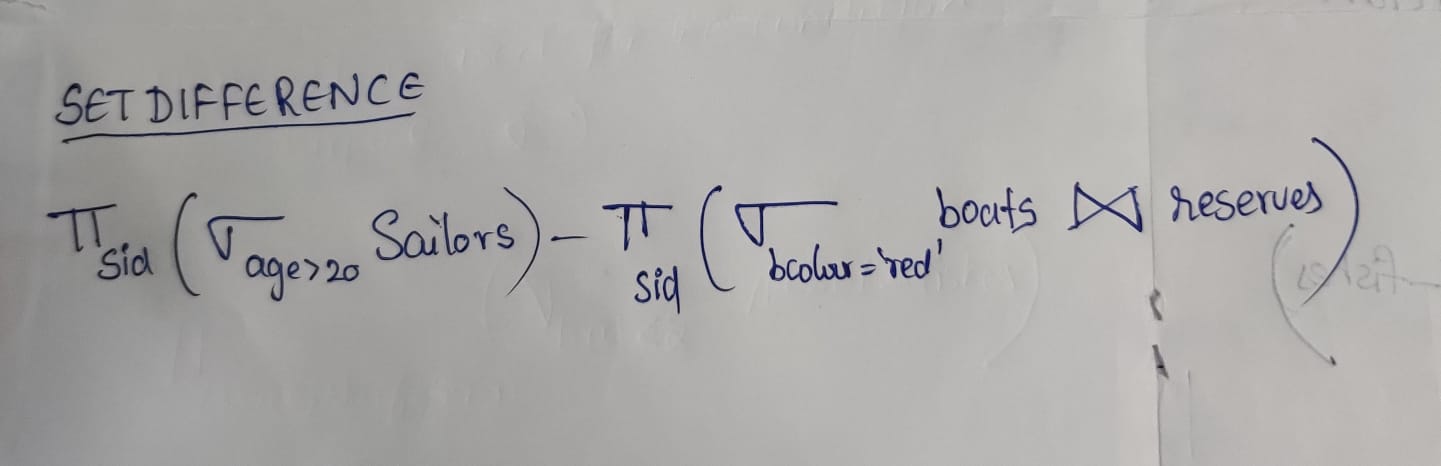 SET DIFFERENCE
π sid (σ age>20 Sailors) – π sid (σ bcolour = 'red' boats ⋈ reserves)